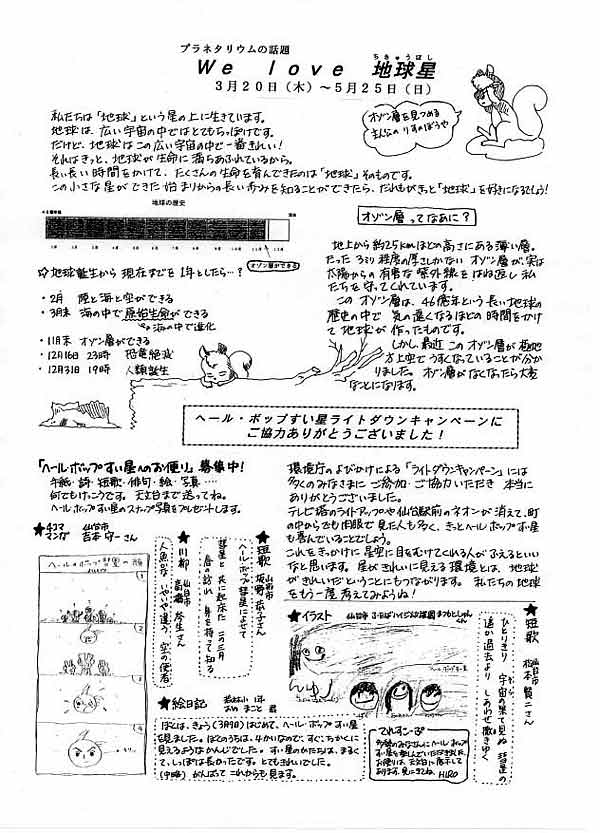 プラネタリウムの話題
We love 地球星
ちきゅうぼし
3月20日(木)～5月25日(日)
オゾン層を見つめる
主人公のりすのぼうや
私たちは「地球」という星の上に生きています。
地球は、広い宇宙の中ではとてもちっぽけです。
だけど、地球はこの広い宇宙の中で一番きれい!
それはきっと、地球が生命に満ちあふれているから。
長い長い時間をかけて、たくさんの生命を育んできたのは「地球」そのものです。
この小さな星ができた始まりからの長い歩みを知ることができたら、だれもがきっと「地球」を好きになるでしょう!
地球の歴史
オゾン層ができる
☆地球誕生から現在までを1年としたら…?
・2月 陸と海と空ができる
・3月末 海の中で原始生命ができる
海の中で進化
・11月末 オゾン層ができる
・12月16日 23時 恐竜絶滅
・12月31日 19時 人類誕生
オゾン層ってなあに?
地上から約25kmほどの高さにある薄い層。
たった3ミリ程度の厚さしかないオゾン層が、実は
太陽からの有害な紫外線をはね返し私
たちを守ってくれています。
このオゾン層は、46億年という長い地球の
歴史の中で気の遠くなるほどの時間をかけ
て地球が作ったものです。
しかし、最近このオゾン層が極地
方上空でうすくなっていることが分か
りました。オゾン層がなくなったら大変
なことになります。
ヘール・ボップすい星ライトダウンキャンペーンに
ご協力ありがとうございました!
「ヘール・ボップすい星へのお便り」募集中!
手紙・詩・短歌・俳句・絵・写真……
何でもけっこうです。天文台まで送ってね。
ヘール・ボップすい星のスナップ写真をプレゼントします。
環境庁のよびかけによる「ライトダウンキャンペーン」には
多くのみなさまにご参加・ご協力いただき 本当に
ありがとうございました。
テレビ塔のライトアップや仙台駅前のネオンが消えて、町
の中からでも肉眼で見た人も多く、きっとヘール・ボップすい星
も喜んでいることでしょう。
これをきっかけに星空に目をむけてくれる人がふえるといい
なと思います。星がきれいに見える環境とは、地球
がきれいだということにもつながります。私たちの地球
をもう一度考えてみようね!
★4コママンガ 仙台市
吉本守一さん
ヘール・ボップ彗星の顔
1
2
3
4
★川柳 仙台市
高橋 さん
人魚かな いやいや違う 空の使者
★短歌 仙台市
坂野恭子さん
ヘール・ボップ彗星によせて
彗星と共に起床た この三月
春の訪れ 身を持って知る
★イラスト 仙台市
★短歌 仙台市
松本賢二さん
ひとりきり 宇宙の果て見ぬ 彗星の
遥か過去より しあわせ撒きゆく
★絵日記 1年
君
ぼくは、きょう(3月9日)はじめて、ヘール・ボップすい星
を見ました。ぼくのうちは、4かいなので、すぐちかくに
見えるようなかんじでした。すい星のかたちは、まるく
て、しっぽは長かったです。とてもきれいでした。
(中略)がんばってこれからも見ます。
てれすこーぷ
多勢のみなさんにヘール・ボップ
すい星を楽しんでいただきました。
お便りは、天文台に展示して
あります。見にきてね。HIRO